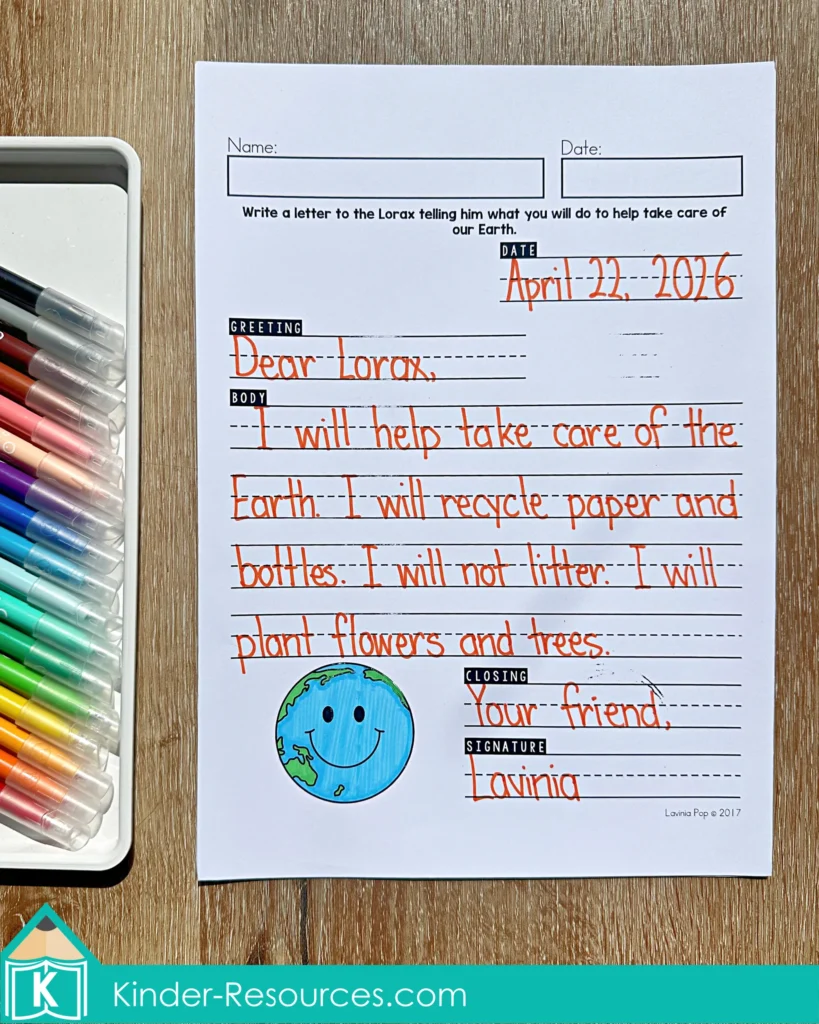 Name:
Date:
Write a letter to the Lorax telling him what you will do to help take care of
our Earth.
DATE
April 22, 2026
GREETING
Dear Lorax,
BODY
I will help take care of the
Earth. I will recycle paper and
bottles. I will not litter. I will
plant flowers and trees.
CLOSING
Your friend,
SIGNATURE
Lavinia
Lavinia Pop © 2017
K
Kinder-Resources.com